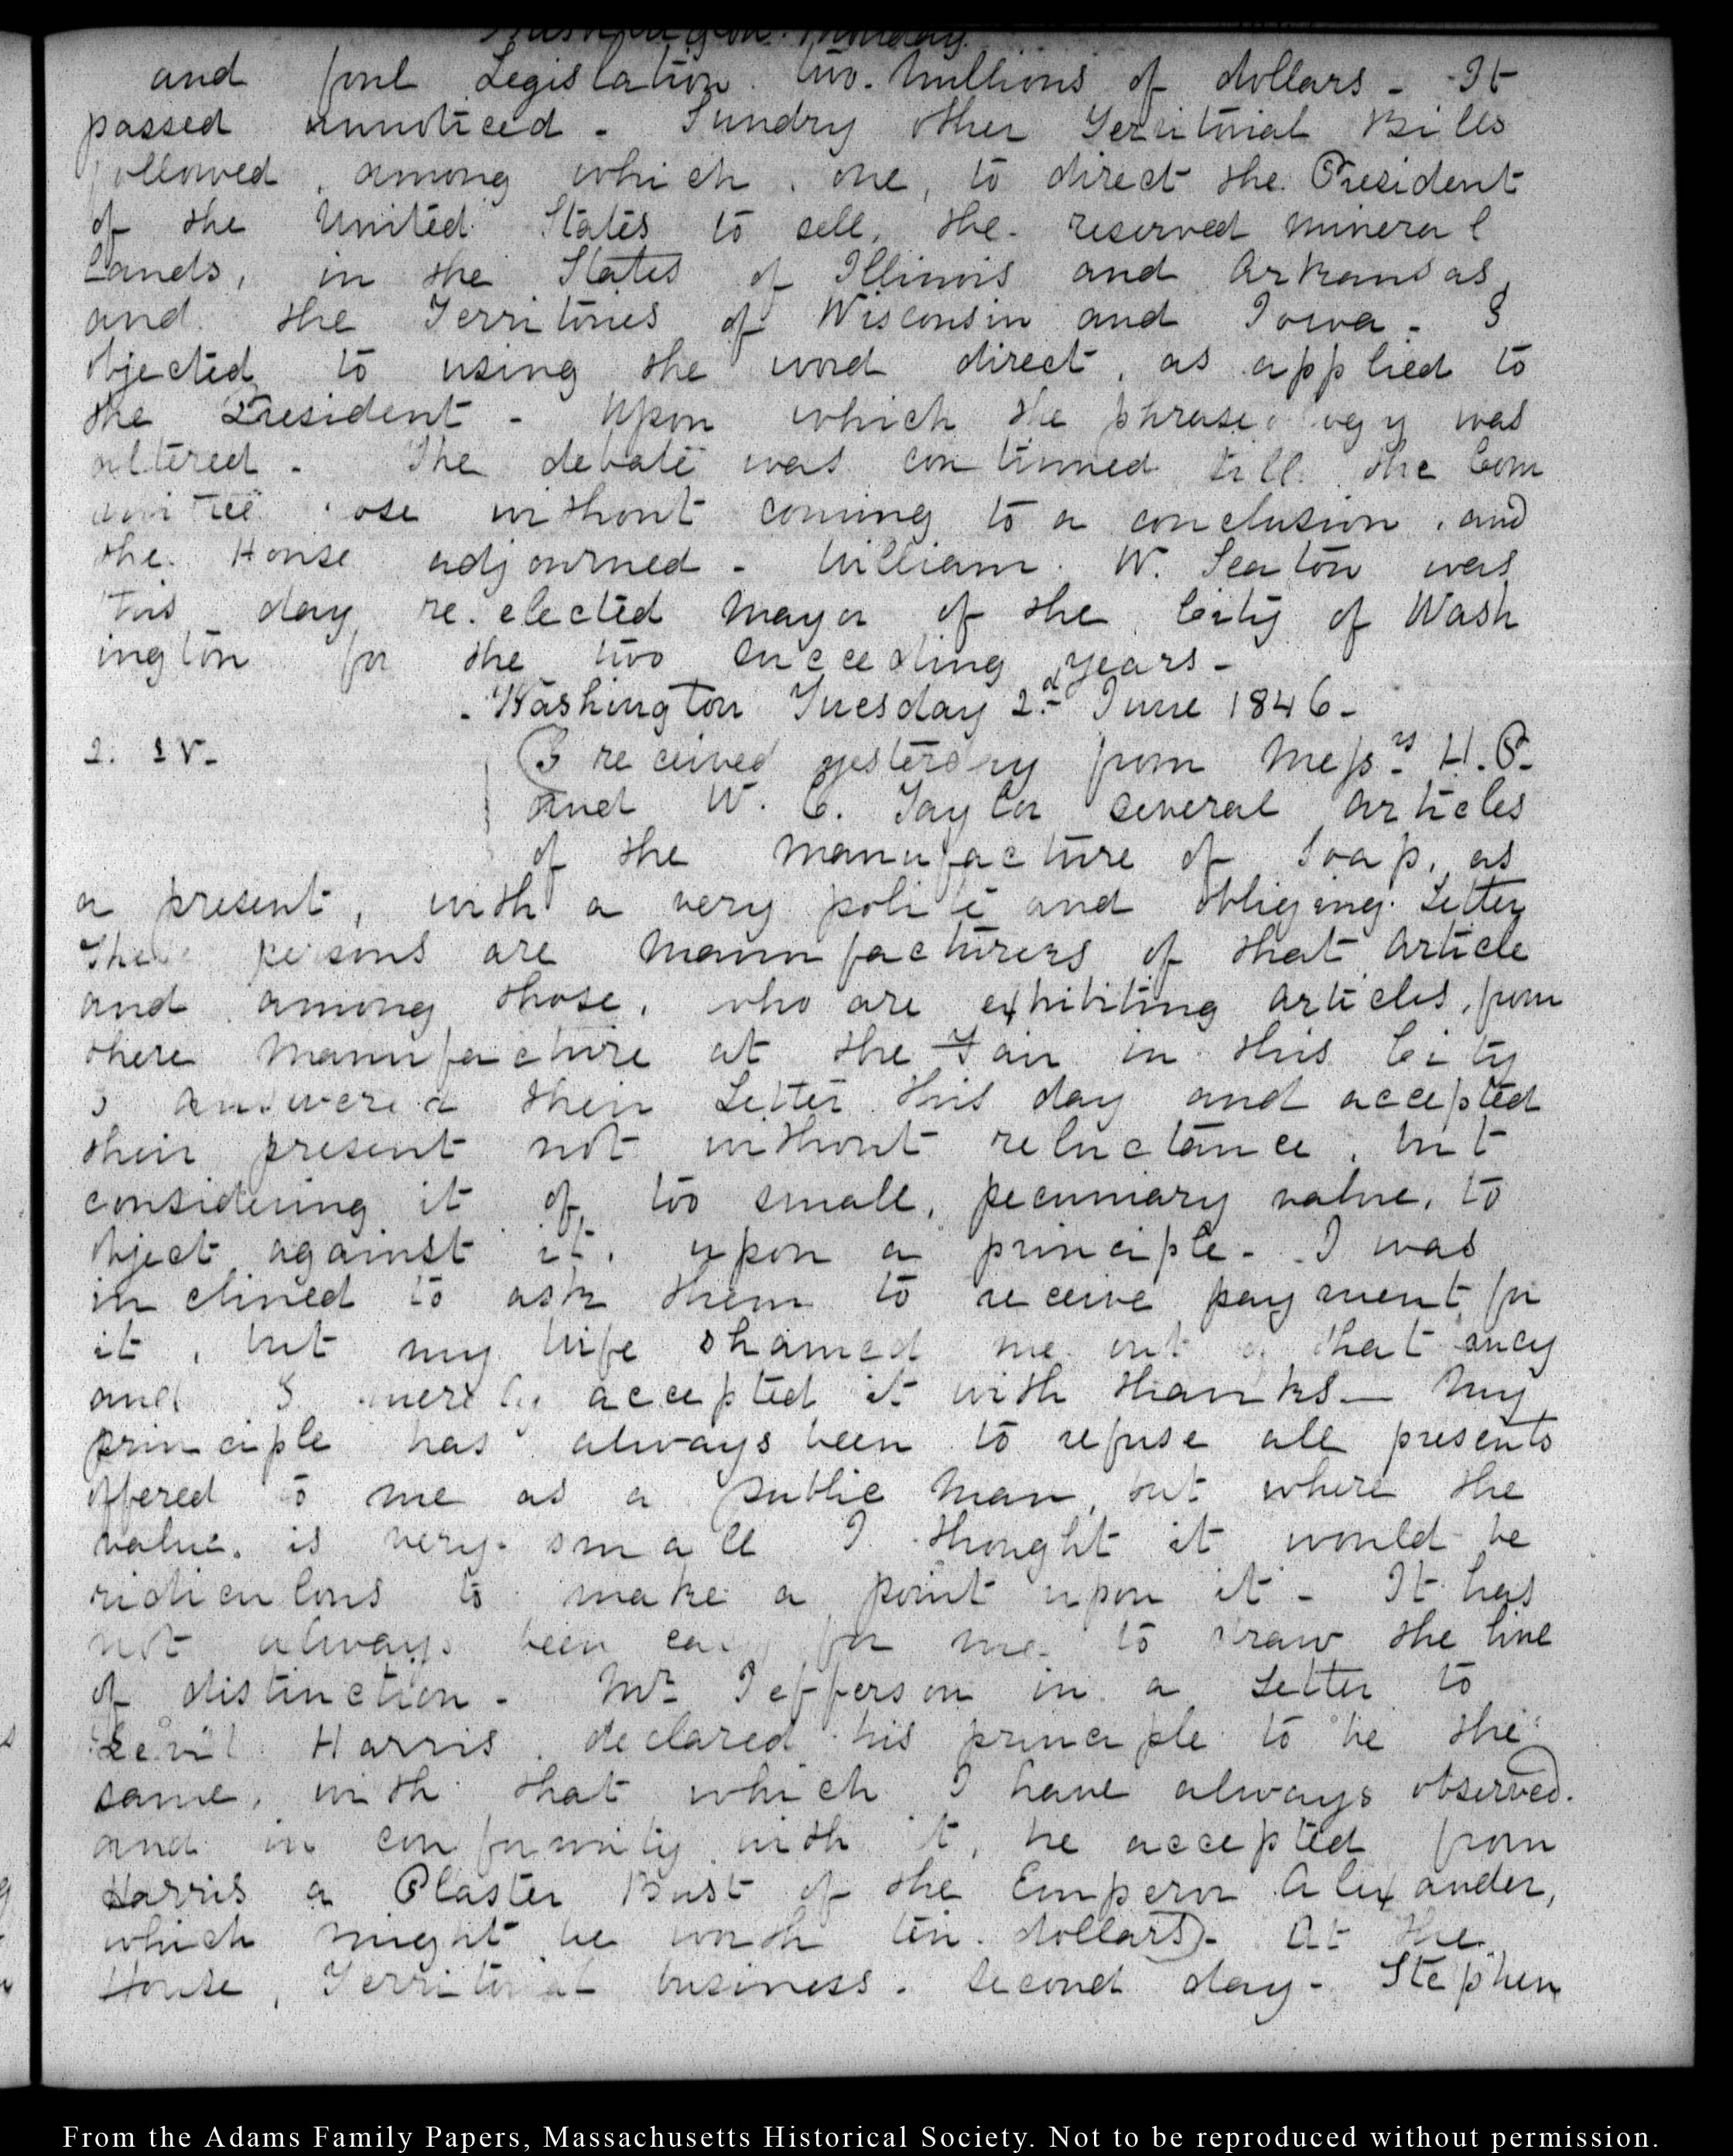 Washington. Monday.
and foul Legislation two. Millions of dollars - It
passed unnoticed - Sundry other Territorial Bills
followed, among which, one, to direct the President
of the United States to sell, the reserved mineral
Lands, in the States of Illinois and Arkansas,
and the Territories of Wisconsin and Iowa - I
objected to using the word direct, as applied to
the President - Upon which the phraseology was
altered - The debate was continued till the Com
mittee rose without coming to a conclusion, and
the House adjourned - William W. Seaton was
this day re.elected Mayor of the City of Wash
ington for the two succeeding years -
- Washington Tuesday 2.d June 1846 -
2. IV-
I received yesterday from Mess.rs H.P.
and W. C. Taylor several articles
of the manufacture of Soap, as
a present, with a very polite and obliging Letter
These persons are manufacturers of that article
and among those, who are exhibiting articles, from
there manufacture at the Fair in this City
I answered their Letter this day and accepted
their present not without reluctance, but
considering it of too small, pecuniary value, to
object against it, upon a principle - I was
inclined to ask them to receive payment for
it, but my wife shamed me out of that fancy
and I merely accepted it with thanks - My
principle has always been to refuse all presents
offered to me as a public man, but where the
value, is very small I thought it would be
ridiculous to make a point upon it - It has
not always been easy for me to draw the line
of distinction - Mr Jefferson in a Letter to
Levit Harris, declared his principle to be the
same, with that which I have always observed.
and in conformity with it, he accepted from
Harris a Plaster Bust of the Emperor Alexander,
which might be worth ten dollars) - At the
House, Territorial business. Second day - Stephen
From the Adams Family Papers, Massachusetts Historical Society. Not to be reproduced without permission.